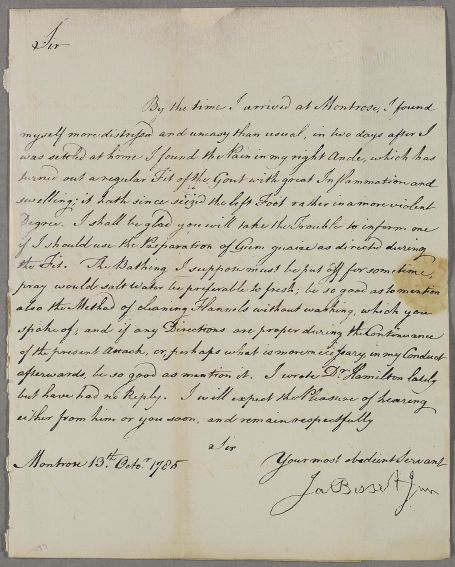 Sir
By the time I arrived at Montrose, I found
myself more distressed and uneasy than usual, in two days after I
was settled at home I found the Pain in my right Ancle, which has
turned out a regular Fit of the Gout with great Inflammation and
swelling; it hath since seized the left Foot rather in a more violent
Degree. I shall be glad you will take the Trouble to inform me
if I should use the Preparation of Gum guaiac as directed during
the Fit. The Bathing I suppose must be put off for sometime,
pray would salt Water be preferable to fresh; be so good as to mention
also the Method of cleaning Flannels without washing, which you
spoke of; and if any Directions are proper during the Continuance
of the present Attack, or, perhaps what is more necessary, in my Conduct
afterwards, be so good as mention it. I wrote Dr. Hamilton lately
but have had no Reply. I will expect the Pleasure of hearing
either from him or you soon, and remain respectfully
Sir
Your most obedient Servant
Montrose 13th. Octor. 1785
Ja Bisset Junr